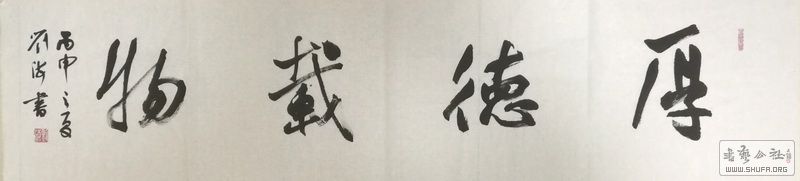 厚德載物
丙申之夏
書
書藝公社
WWW.SHUFA.ORG